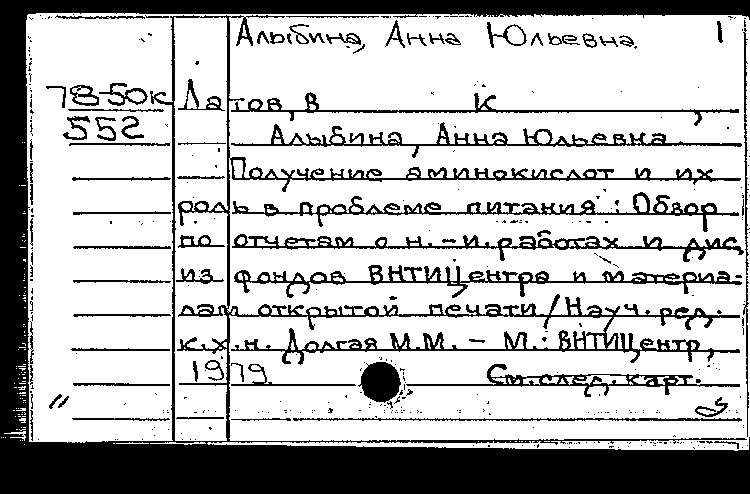 Алыбина, Анна Юльевна 1
78-50к Латов, В К ,
552 Алыбина, Анна Юльевна
Получение аминокислот и их
роль в проблеме питания : Обзор
по отчетам о н.-и. работах и дис.
из фондов ВНТИЦентра и материа-
лам открытой печати / Науч. ред.
к.х.н. Долгая М.М. - М.: ВНТИЦентр,
1979. См. след. карт.